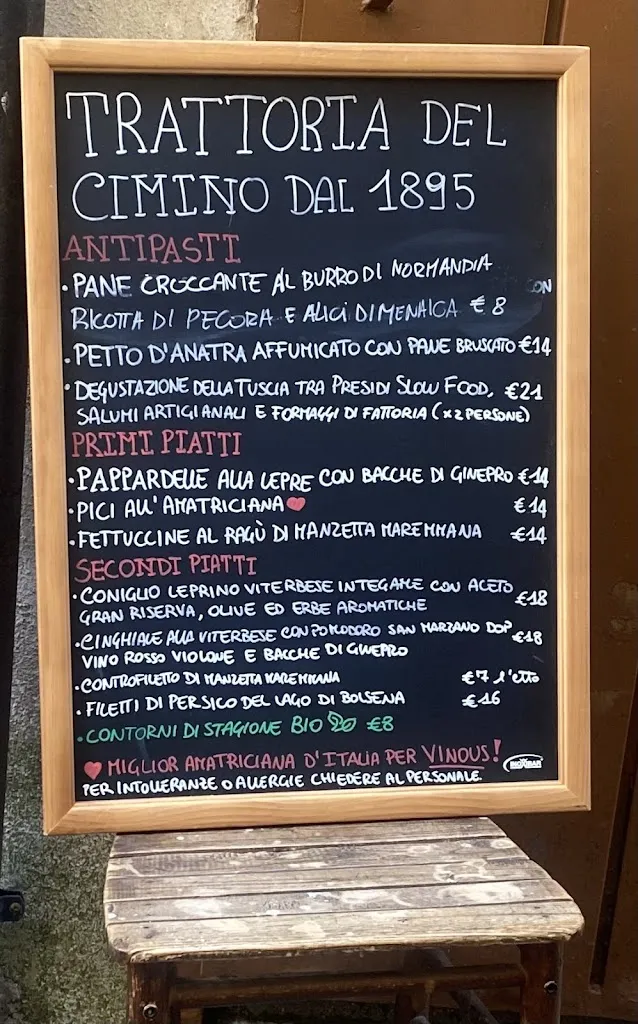 TRATTORIA DEL
CIMINO DAL 1895
ANTIPASTI
• PANE CROCCANTE AL BURRO DI NORMANDIA CON
RICOTTA DI PECORA E ALICI DI MENAICA € 8
• PETTO D'ANATRA AFFUMICATO CON PANE BRUSCATO €14
• DEGUSTAZIONE DELLA TUSCIA TRA PRESIDI SLOW FOOD, €21
SALUMI ARTIGIANALI E FORMAGGI DI FATTORIA (x2 PERSONE)
PRIMI PIATTI
• PAPPARDELLE ALLA LEPRE CON BACCHE DI GINEPRO €14
• PICI ALL'AMATRICIANA ❤ €14
• FETTUCCINE AL RAGÙ DI MANZETTA MAREMMANA €14
SECONDI PIATTI
• CONIGLIO LEPRINO VITERBESE IN TEGAME CON ACETO €18
GRAN RISERVA, OLIVE ED ERBE AROMATICHE
• CINGHIALE ALLA VITERBESE CON POMODORO SAN MARZANO DOP €18
VINO ROSSO VIOLONE E BACCHE DI GINEPRO
• CONTROFILETTO DI MANZETTA MAREMMANA €7 l'etto
• FILETTI DI PERSICO DEL LAGO DI BOLSENA €16
• CONTORNI DI STAGIONE BIO €8
❤ MIGLIOR AMATRICIANA D'ITALIA PER VINOUS!
PER INTOLLERANZE O ALLERGIE CHIEDERE AL PERSONALE.